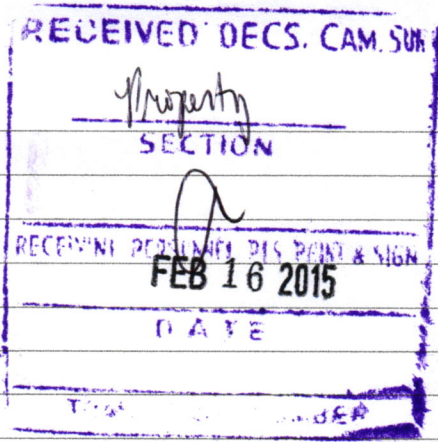 RECEIVED DECS. CAM. SUR
Property
SECTION
RECEIVING PERSONNEL PLS PRINT & SIGN
FEB 16 2015
DATE